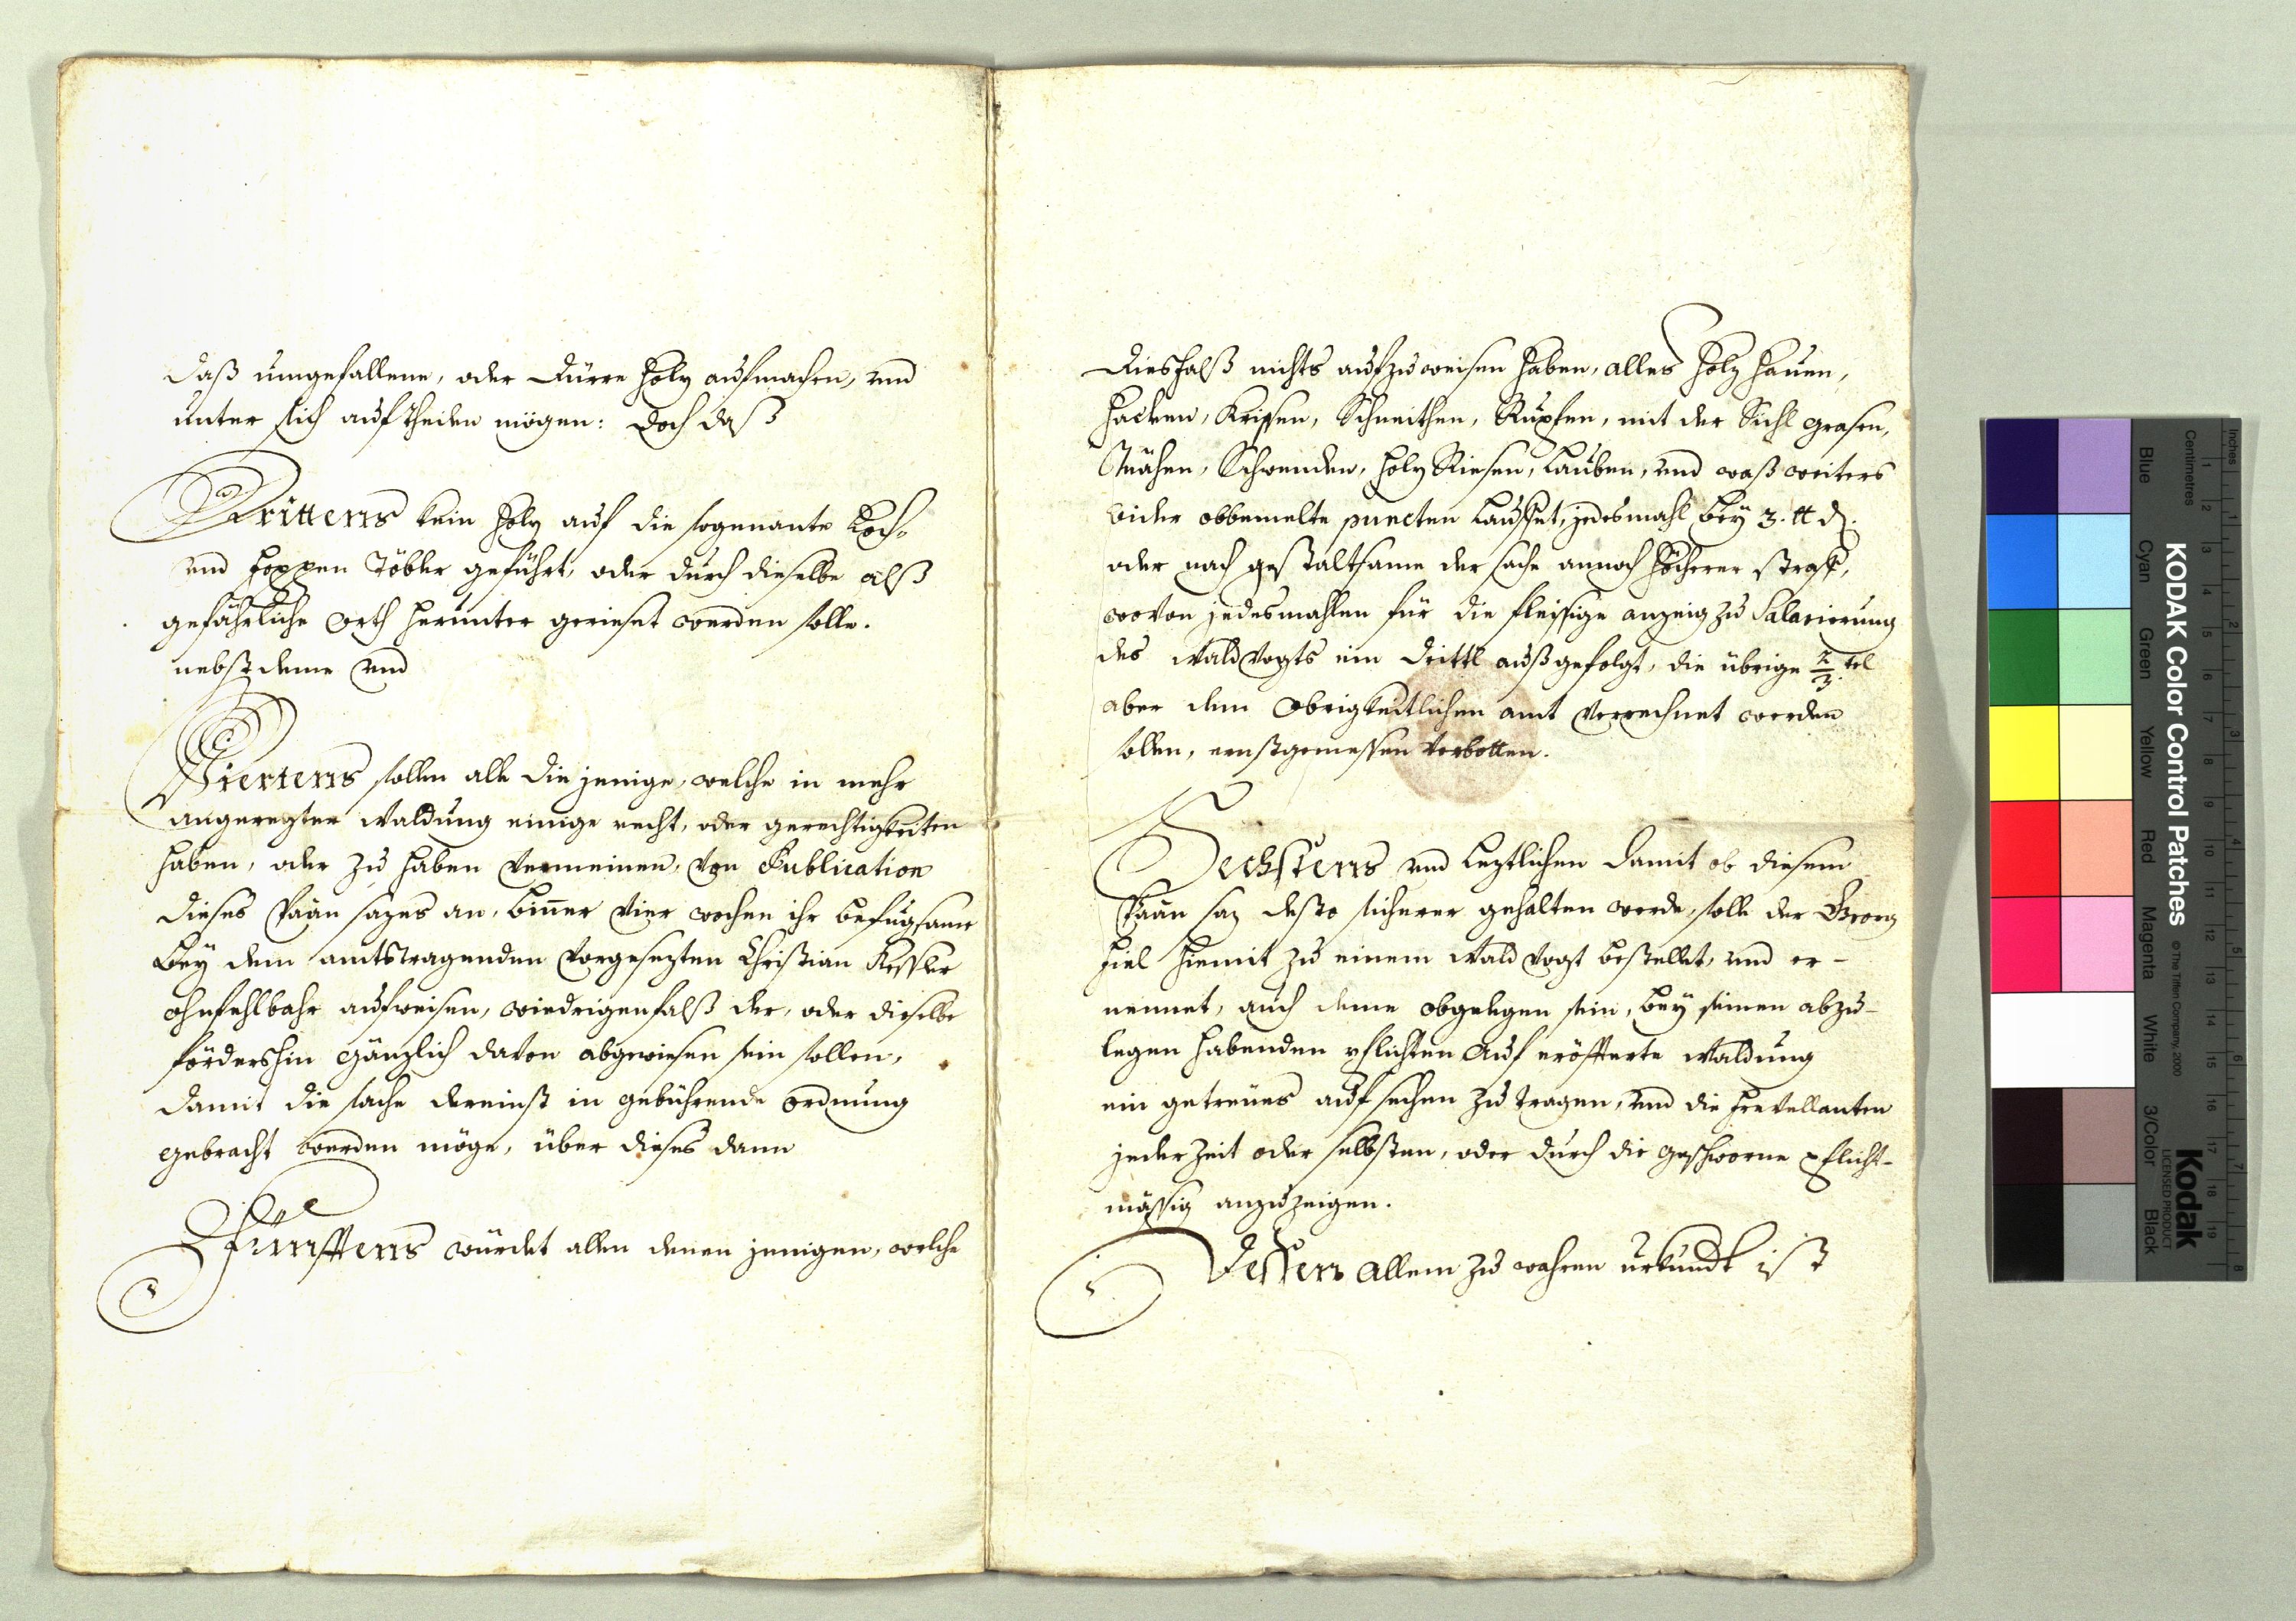 daß umgefallene, oder durre Holz aufmachen, und
unter sich auftheilen mögen: doch daß
Drittens kein Holz auf die sogenante Koch-
und Hoppen Töbler geführt, oder durch dieselbe alß
gefährliche orth herunter gerieset werden solle.
nebst deme und
Viertens sollen alle die jenige, welche in mehr
angeregter Waldung einige recht, oder gerechtigkeiten
haben, oder zu haben vermeinen, von Publication
dieses Pään sazes an, binner vier wochen ihr befugsame
bey dem amtstragenden vorgesezten Christian Kessler
ohnfehlbahr aufweisen, wiedrigenfalß der, oder dieselbe
fördershin gänzlich davon abgewiesen sein sollen,
damit die sache dereinst in gebührende ordnung
gebracht werden möge, über dieses dann
Fünfftens würdet allen denen jenigen, welche
diesfalß nichts aufzuweisen haben, alles Holz hauen,
hacken, Krissen, Schneithen, Rupfen, mit der Sichl grasen,
Mähen, Schwenden, Holz Riesen, Lauben, und waß weiters
wider obbemelte puncten lauffet, jedesmahl bey 3. ℔ d.
oder nach gestaltsame der sache annoch höcherer straf,
wovon jedesmahlen für die fleissige anzeig zu Salarierung
des Waldvogts ein drittl außgefolgt, die übrige 2/3 tel
aber dem Obrigkeitlichen amt verrechnet werden
sollen, ernstgemessen verbotten.
Sechstens und leztlichen damit ob diesem
Pään saz desto sicherer gehalten werde, solle der Georg
Hiel hiemit zu einem Wald Vogt bestellet, und er-
nennet, auch deme obgelegen sein, bey seinen abzu-
legen habenden pflichten auf eröfferte Waldung
ein getreues aufsechen zu tragen, und die Frevellanten
jederzeit oder selbsten, oder durch die geschworne pflicht-
mässig anzuzeigen.
Dessen allem zu wahren urkundt ist
KODAK Color Control Patches
© The Tiffen Company, 2000
Kodak
LICENSED PRODUCT
Blue
Cyan
Green
Yellow
Red
Magenta
White
3/Color
Black
Inches
Centimetres
1 2 3 4 5 6 7 8
1 2 3 4 5 6 7 8 9 10 11 12 13 14 15 16 17 18 19